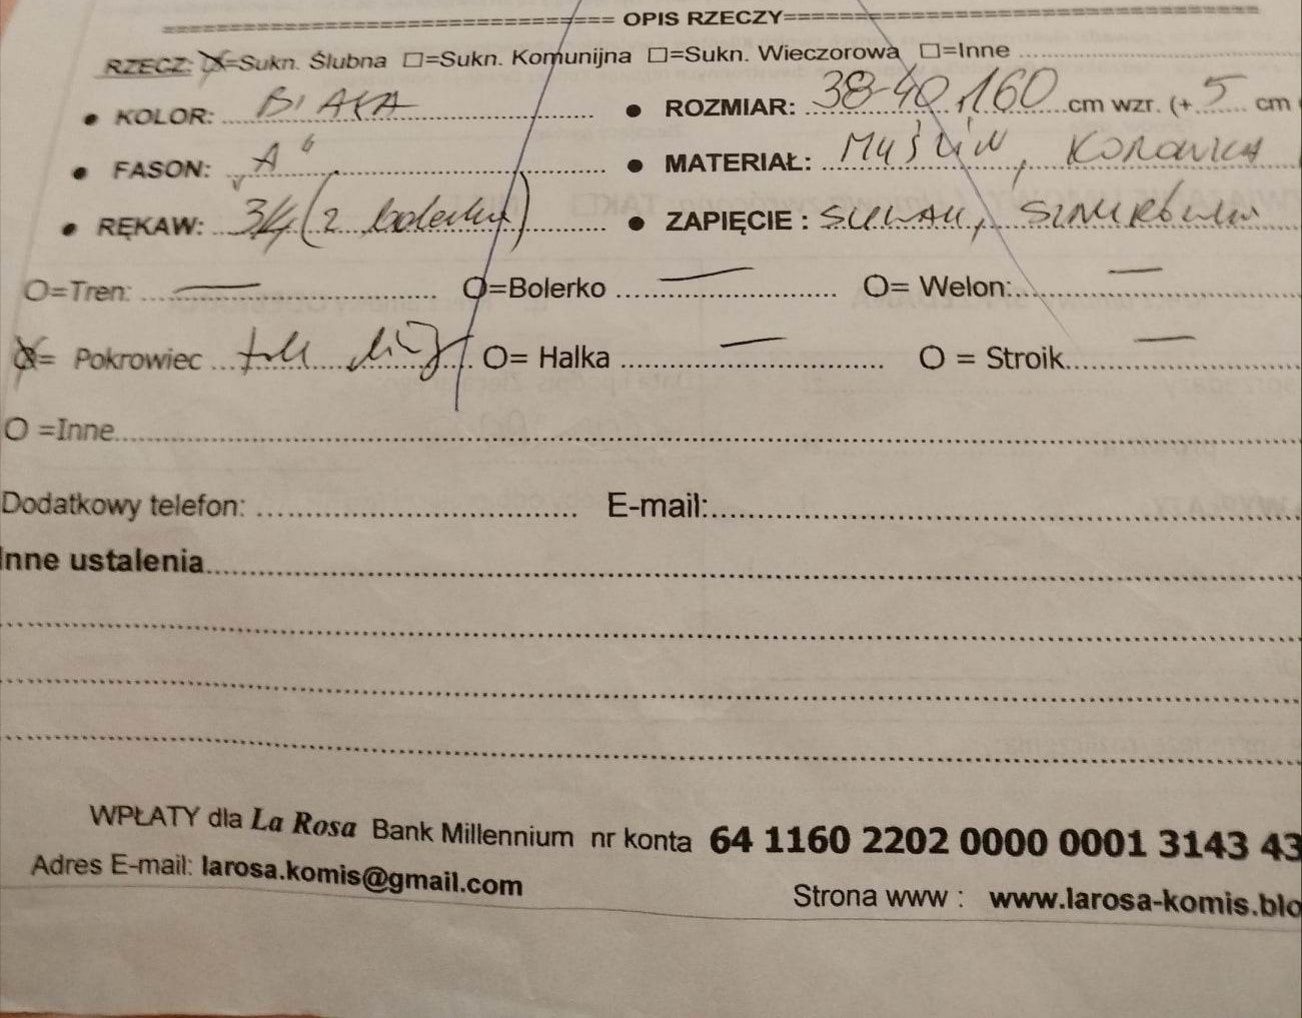 ================================== OPIS RZECZY===================================
RZECZ: ☒=Sukn. Ślubna □=Sukn. Komunijna □=Sukn. Wieczorowa □=Inne ..............................
• KOLOR: BIAŁA • ROZMIAR: 38-40, 160 cm wzr. (+ 5 cm
• FASON: „A" • MATERIAŁ: MUŚLIN, KORONKA
• RĘKAW: 3/4 (z bolerkiem) • ZAPIĘCIE : SUWAK, SZNURÓWKA
O=Tren: — O=Bolerko — O= Welon: —
☒= Pokrowiec O= Halka — O = Stroik —
O =Inne
Dodatkowy telefon: E-mail:
Inne ustalenia
WPŁATY dla La Rosa Bank Millennium nr konta 64 1160 2202 0000 0001 3143 43
Adres E-mail: larosa.komis@gmail.com Strona www : www.larosa-komis.blo